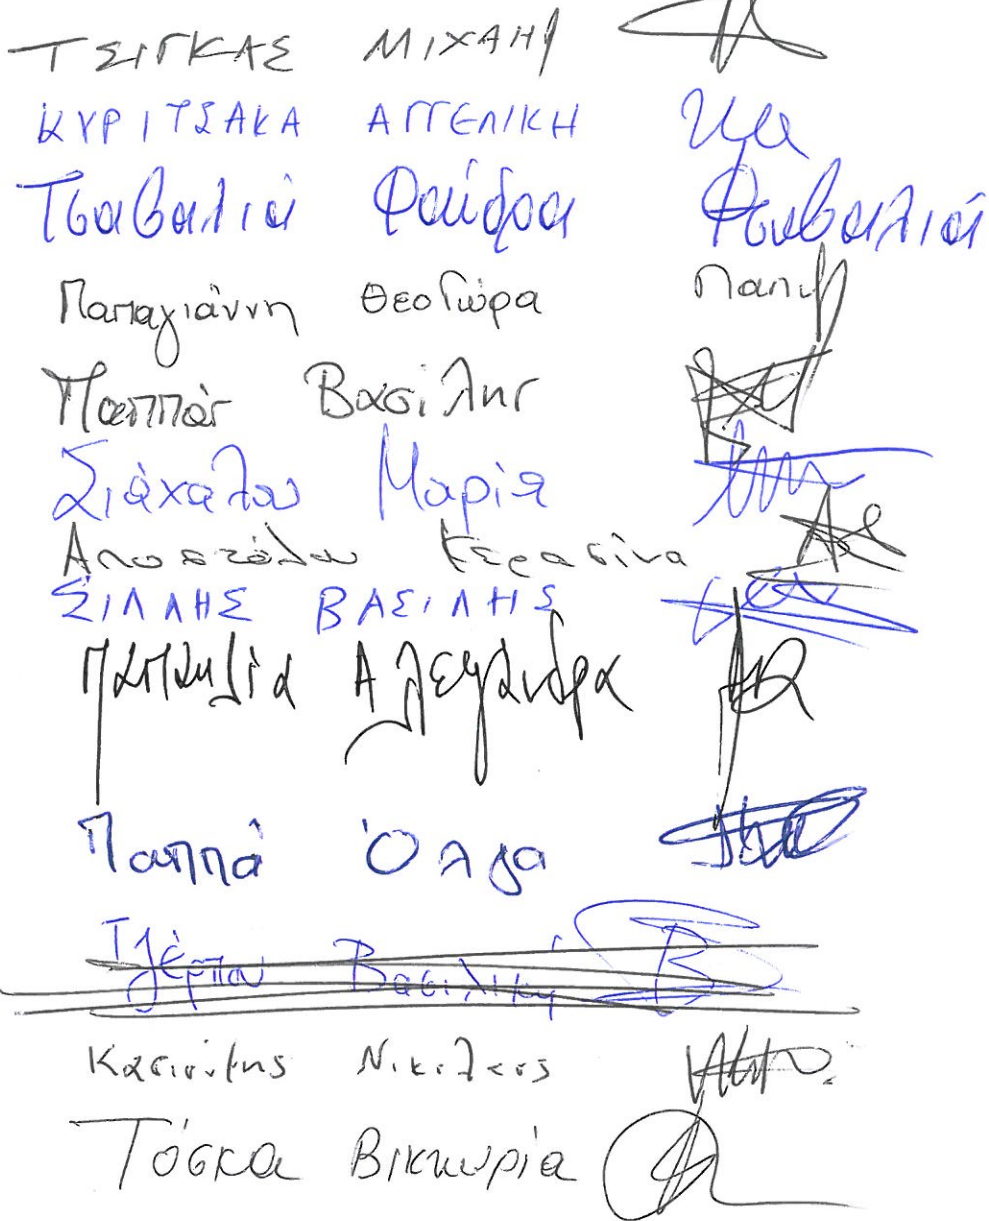 ΤΣΙΓΚΑΣ ΜΙΧΑΗΛ
ΚΥΡΙΤΣΑΚΑ ΑΓΓΕΛΙΚΗ
Τσαβαλιά Φαίδρα Φτσαβαλιά
Παπαγιάννη Θεοδώρα Παπ
Παππάς Βασίλης
Σιάχαλου Μαρία
Αποστόλου Κερασίνα
ΣΙΛΛΗΣ ΒΑΣΙΛΗΣ
Αλεξάνδρα
Παππά Όλγα
Βασιλική
Νικόλαος
Τόσκα Βικτωρία